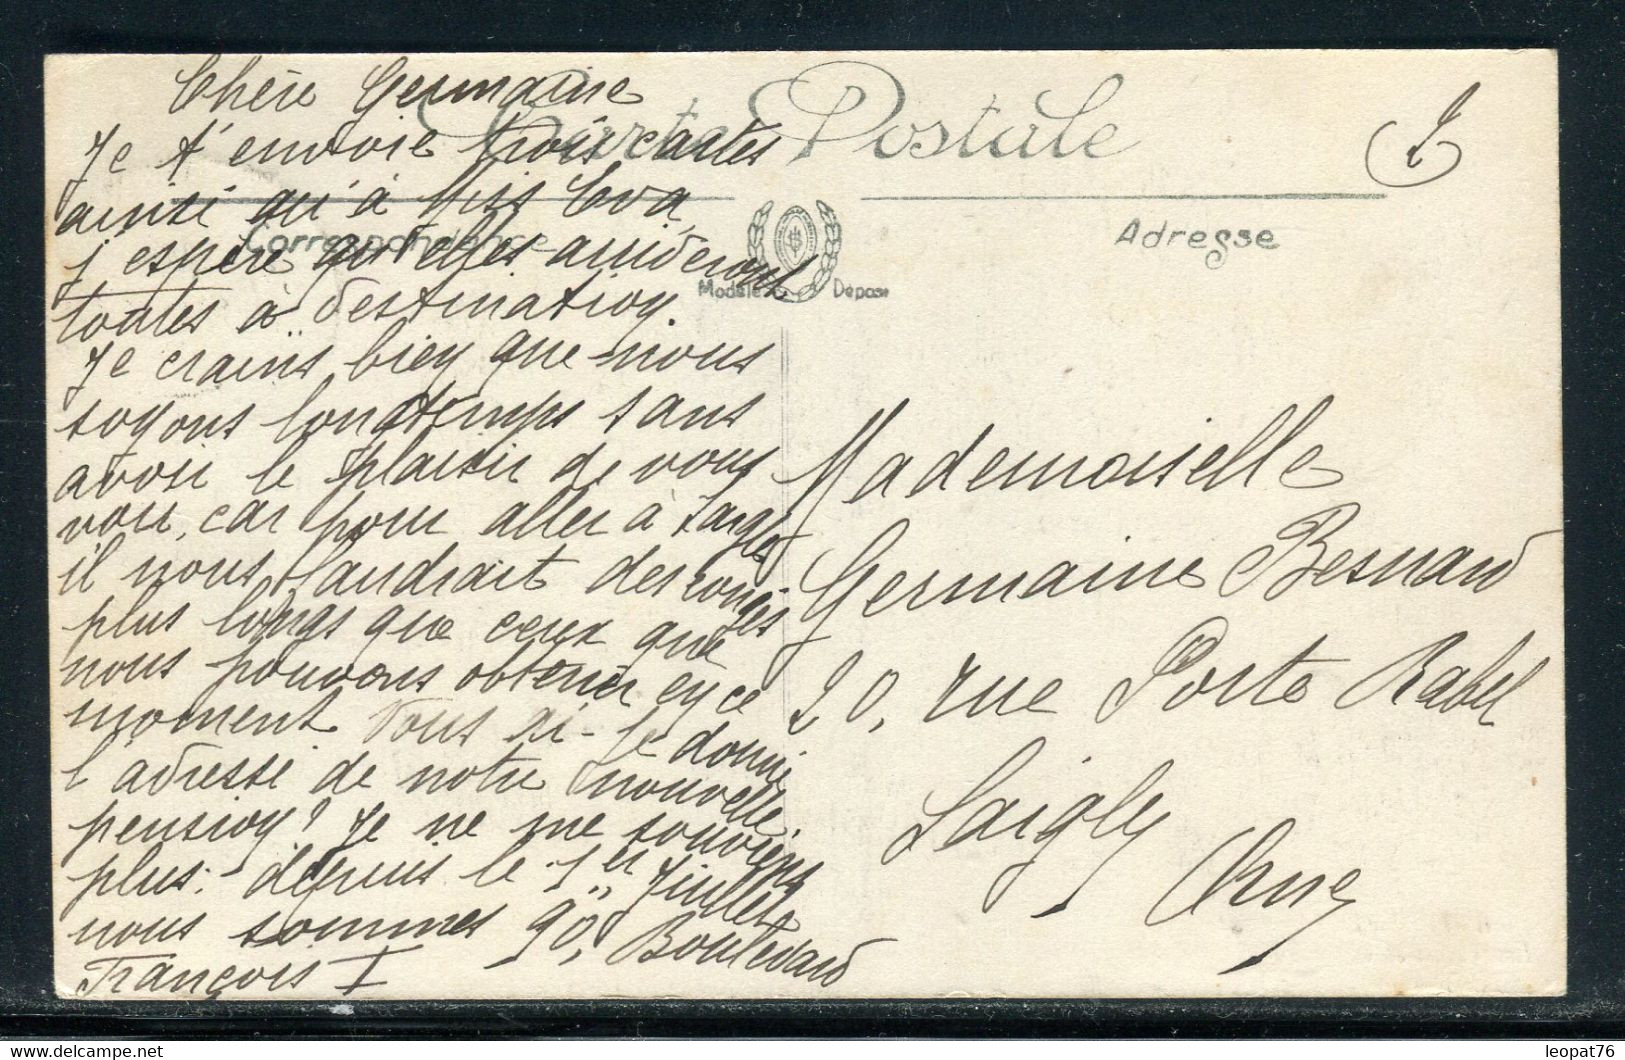 Carte Postale
Correspondance
Adresse
Modèle Déposé
Chère Germaine
Je t'envoie trois cartes
ainsi qu'à Miss Eva,
j'espère qu'elles arriveront
toutes à destination.
Je crains bien que nous
soyons longtemps sans
avoir le plaisir de vous
voir, car pour aller à Laigle
il nous faudrait des congés
plus longs que ceux que
nous pouvons obtenir en ce
moment. Vous ai-je donné
l'adresse de notre nouvelle
pension? Je ne me souviens
plus: depuis le 1er Juillet
nous sommes 90, Boulevard
François I
2
Mademoiselle
Germaine Besnard
20, rue Porte Rabel
Laigle
Orne
leopat76